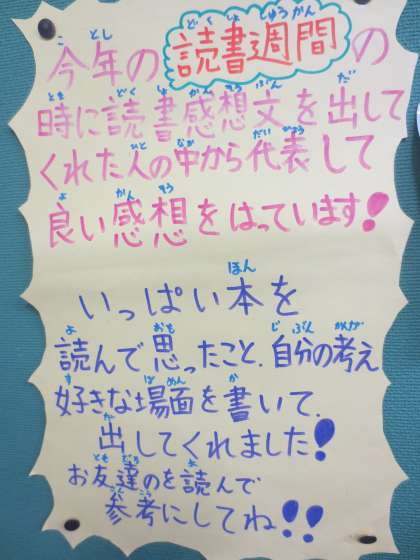 今年の読書週間の
時に読書感想文を出して
くれた人の中から代表して
良い感想をはっています!
いっぱい本を
読んで思ったこと、自分の考え
好きな場面を書いて、
出してくれました!
お友達のを読んで
参考にしてね!!